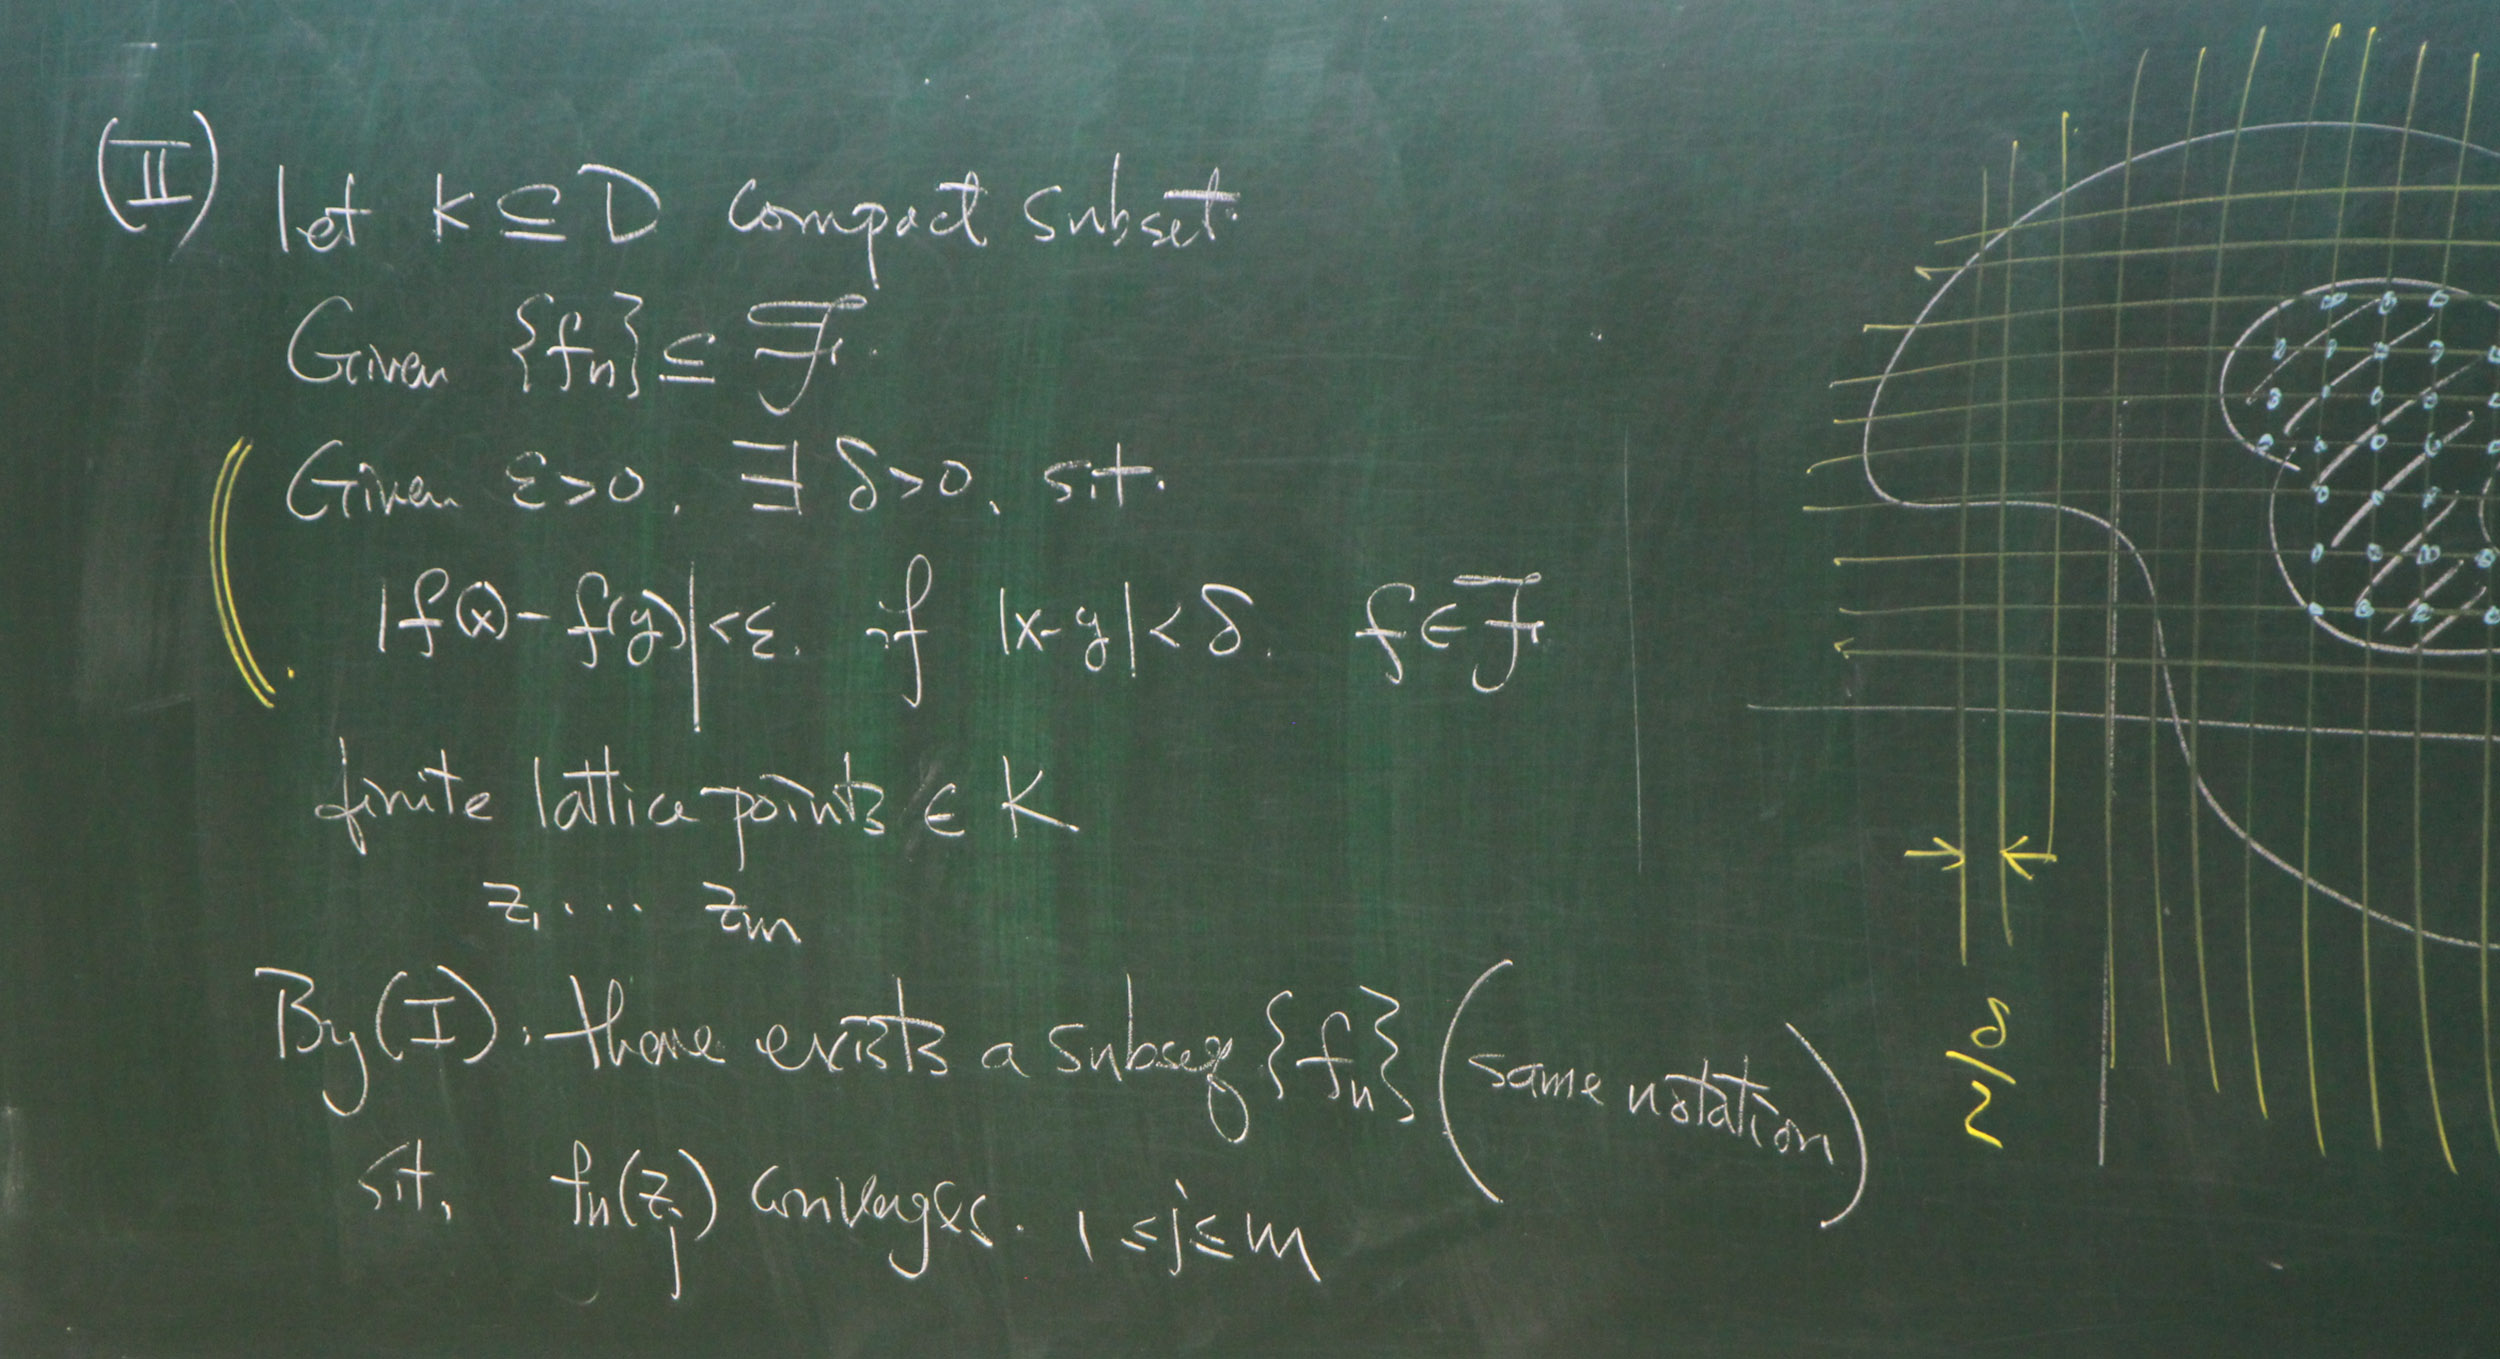 (II) let K ⊆ D compact subset.
Given {fn} ⊆ ℱ.
Given ε>0, ∃ δ>0, s.t.
|f(x)-f(y)|<ε, if |x-y|<δ. f∈ℱ.
finite lattice points ∈ K
z₁ .... zm
By (I), there exists a subseq {fn} (same notation)
s.t. fn(zj) converges. 1≤j≤m
δ/2